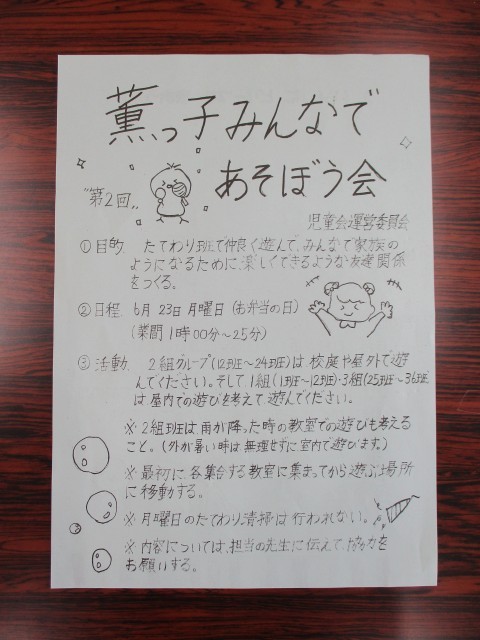 薫っ子みんなで
あそぼう会
"第2回"
児童会運営委員会
①目的 たてわり班で仲良く遊んで、みんなで家族の
ようになるために、楽しくできるような友達関係
をつくる。
②日程 6月23日月曜日(お弁当の日)
(業間1時00分〜25分)
③活動 2組グループ(12班〜24班)は校庭や屋外で遊
んでください。そして1組(1班〜12班)・3組(25班〜36班)
は屋内での遊びを考えて遊んでください。
※2組班は雨が降った時の教室での遊びも考える
こと。(外が暑い時は無理せずに室内で遊びます。)
※最初に、各集合する教室に集まってから遊ぶ場所
に移動する。
※月曜日のたてわり清掃は行われない。
※内容については、担当の先生に伝えて協力を
お願いする。